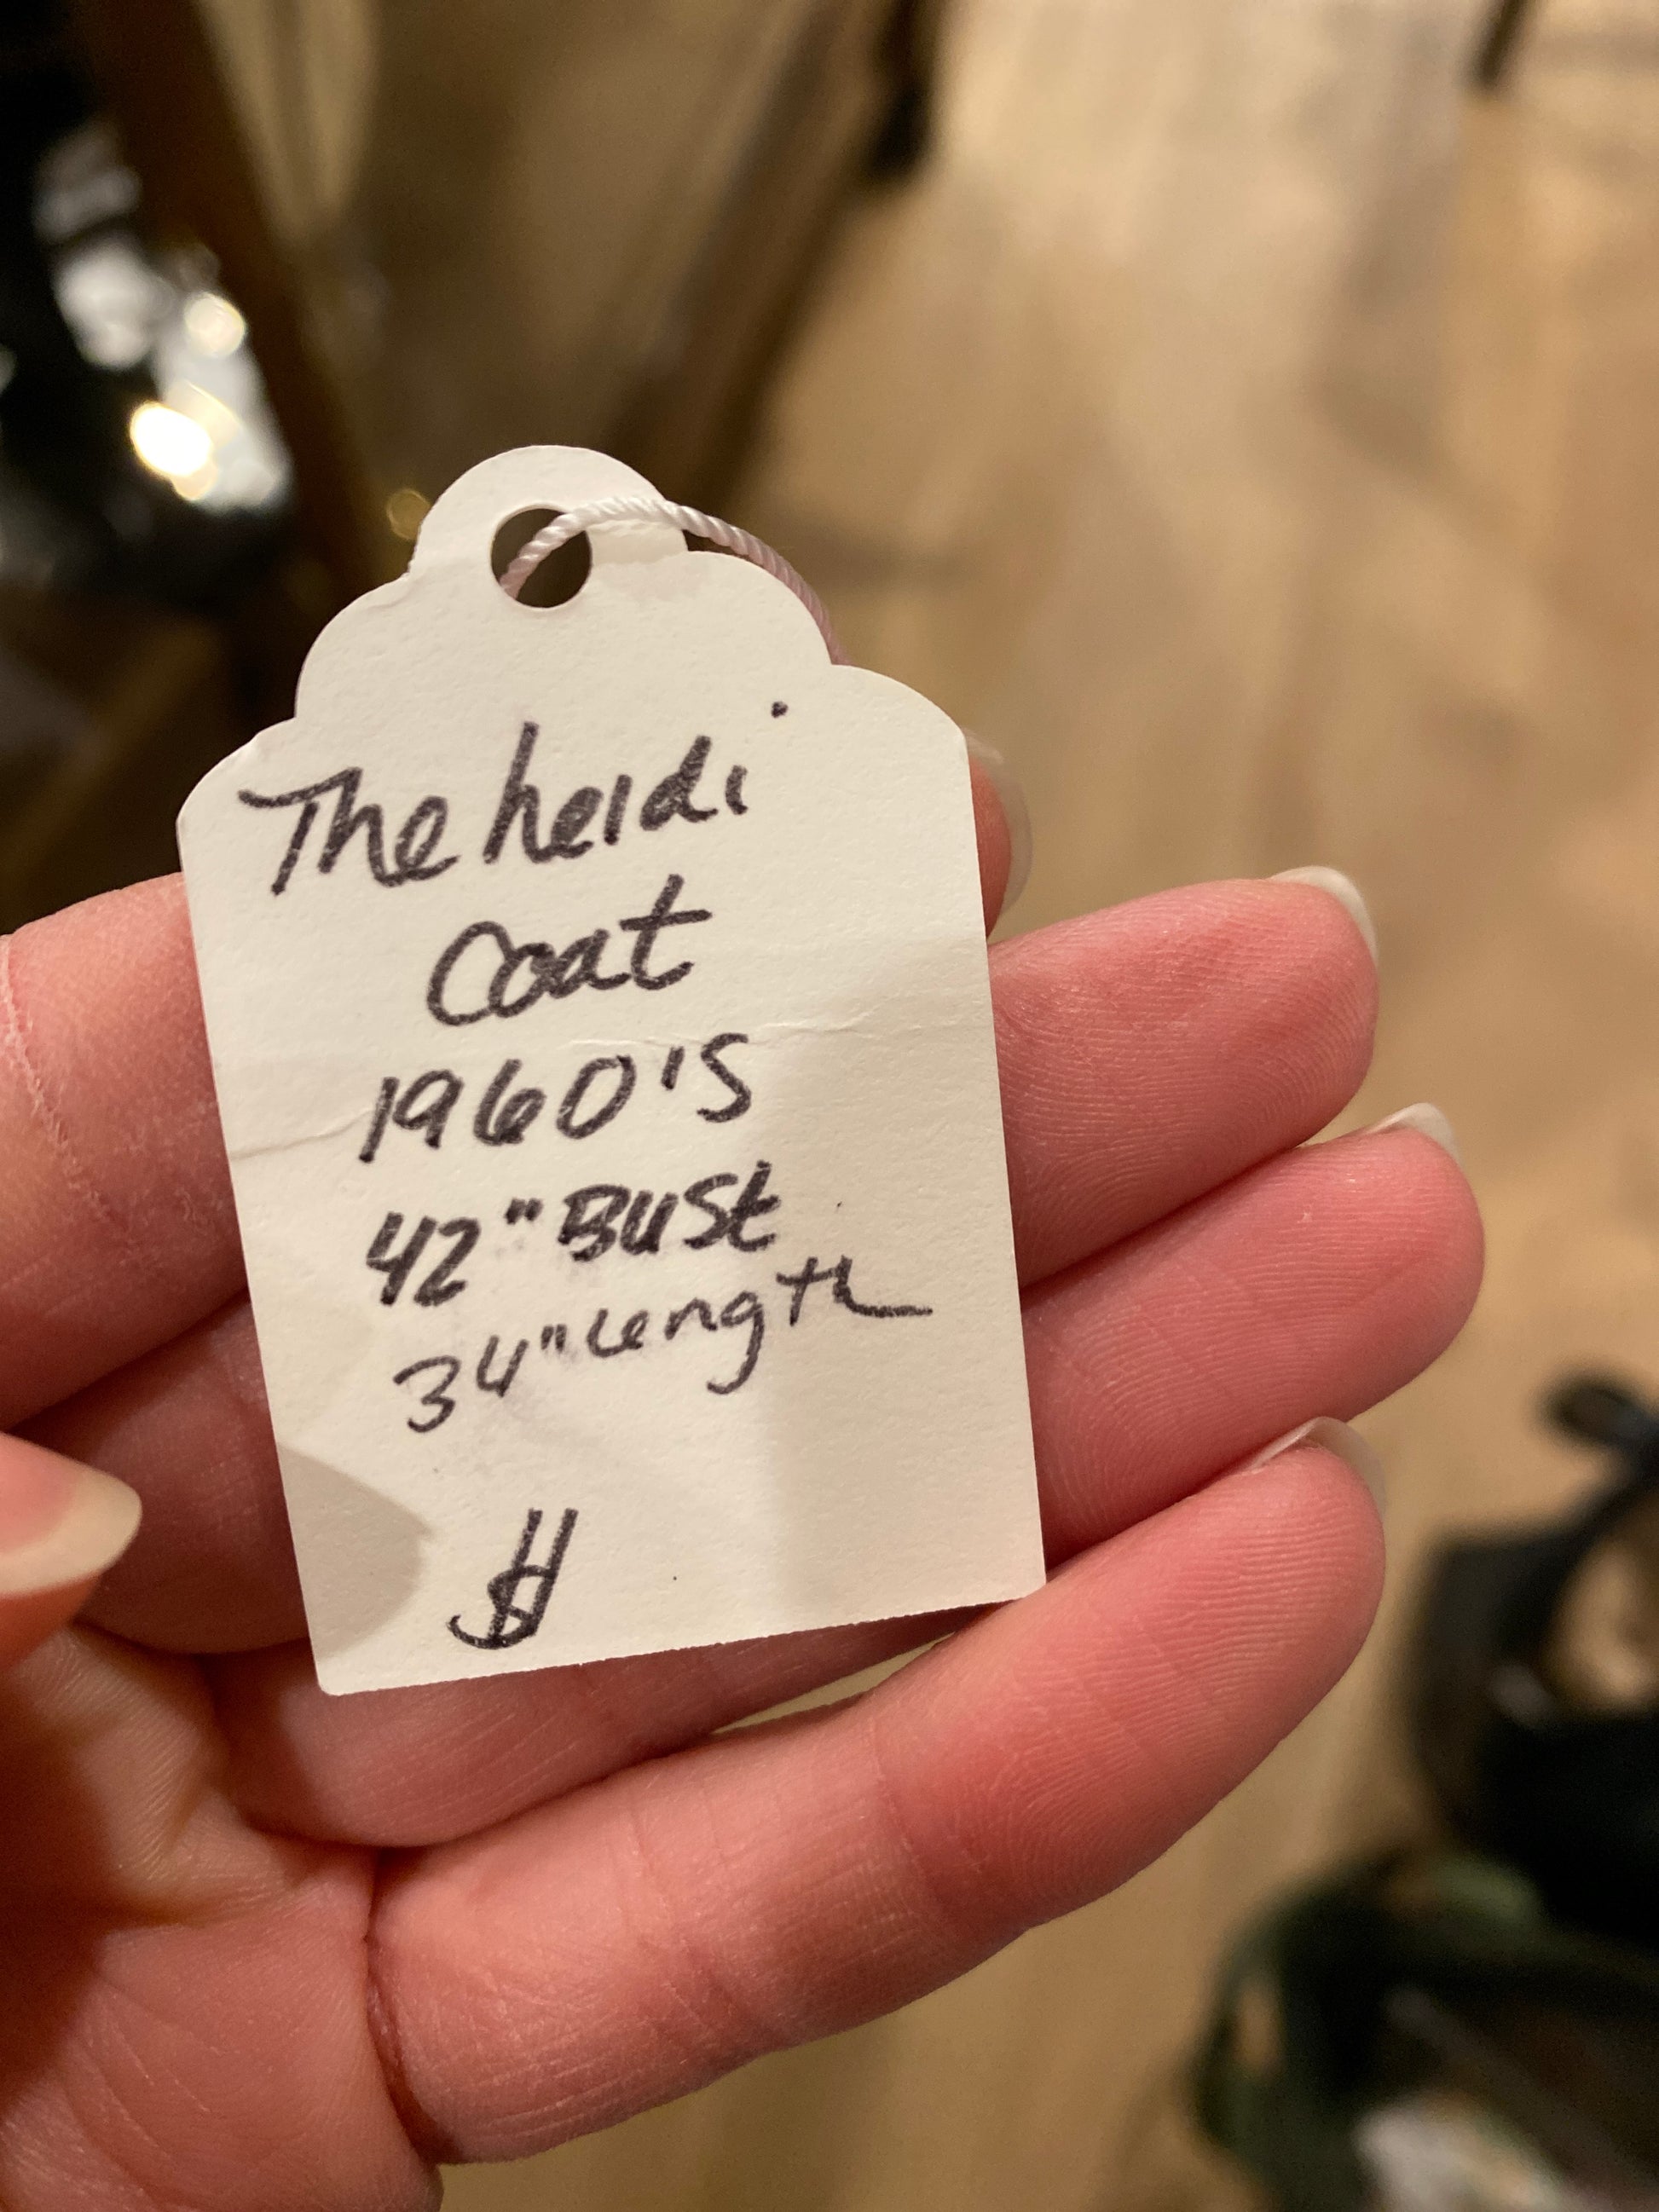 The heidi
Coat
1960'S
42" BUSt
34" Length
$